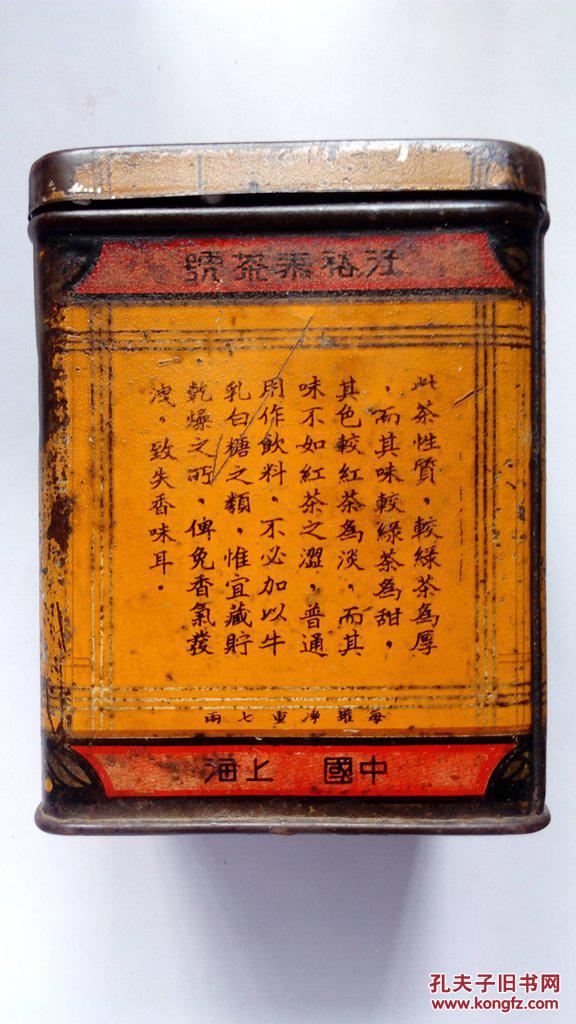 汪裕泰茶號
此茶性質，較綠茶為厚
，而其味較綠茶為甜，
其色較紅茶為淡，而其
味不如紅茶之澀，普通
用作飲料，不必加以牛
乳白糖之類，惟宜藏貯
乾燥之所，俾免香氣發
洩，致失香味耳。
每罐淨重七兩
中國 上海
孔夫子旧书网
www.kongfz.com